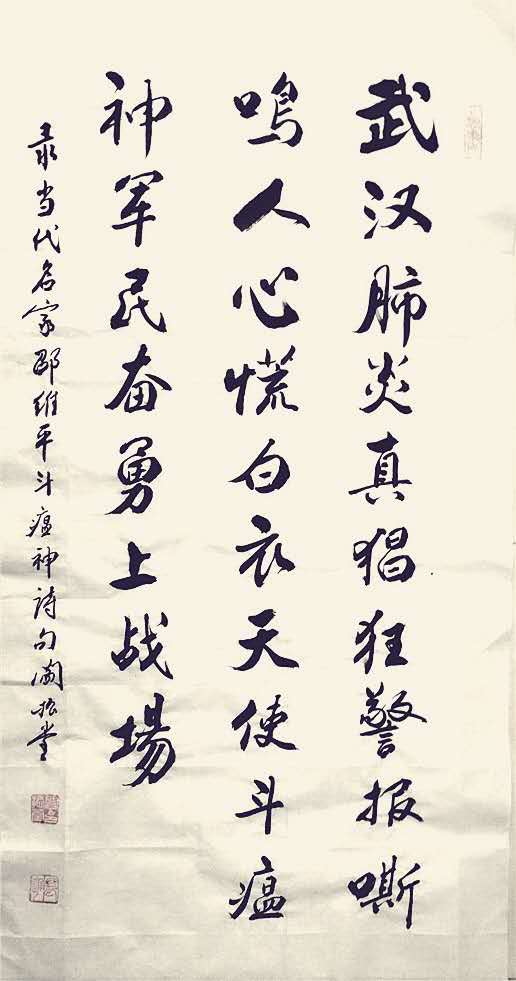 武汉肺炎真猖狂警报嘶
鸣人心慌白衣天使斗瘟
神军民奋勇上战場
录当代名家邵维平斗瘟神詩句阚松堂